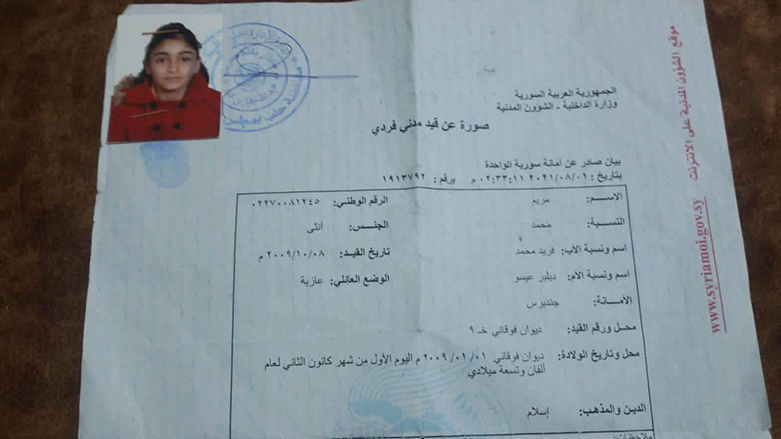 الجمهورية العربية السورية
وزارة الداخلية - الشؤون المدنية
صورة عن قيد مدني فردي
بيان صادر عن أمانة سورية الواحدة
بتاريخ : ٢٠٢١/٠٨/٠١ ٠٢:٣٣:١١ م برقم : ١٩١٣٧٩٢
الاســـم: مريم الرقم الوطني: ٠٢٢٧٠٠٨١٢٤٥
النسبة: محمد الجنــس: أنثى
اسم ونسبة الأب: فريد محمد تاريخ القيد: ٢٠٠٩/١٠/٠٨ م
اسم ونسبة الأم: ديلبر عيسو الوضع العائلي: عازبة
الأمـانة: جنديرس
محـل ورقم القيد: ديوان فوقاني خـ ٩
محل وتاريخ الولادة: ديوان فوقاني ٢٠٠٩/٠١/٠١ م اليوم الأول من شهر كانون الثاني لعام
ألفان وتسعة ميلادي
الدين والمذهـب: إسلام
ملاحظات:
موقع الشؤون المدنية على الانترنت
www.syriamoi.gov.sy